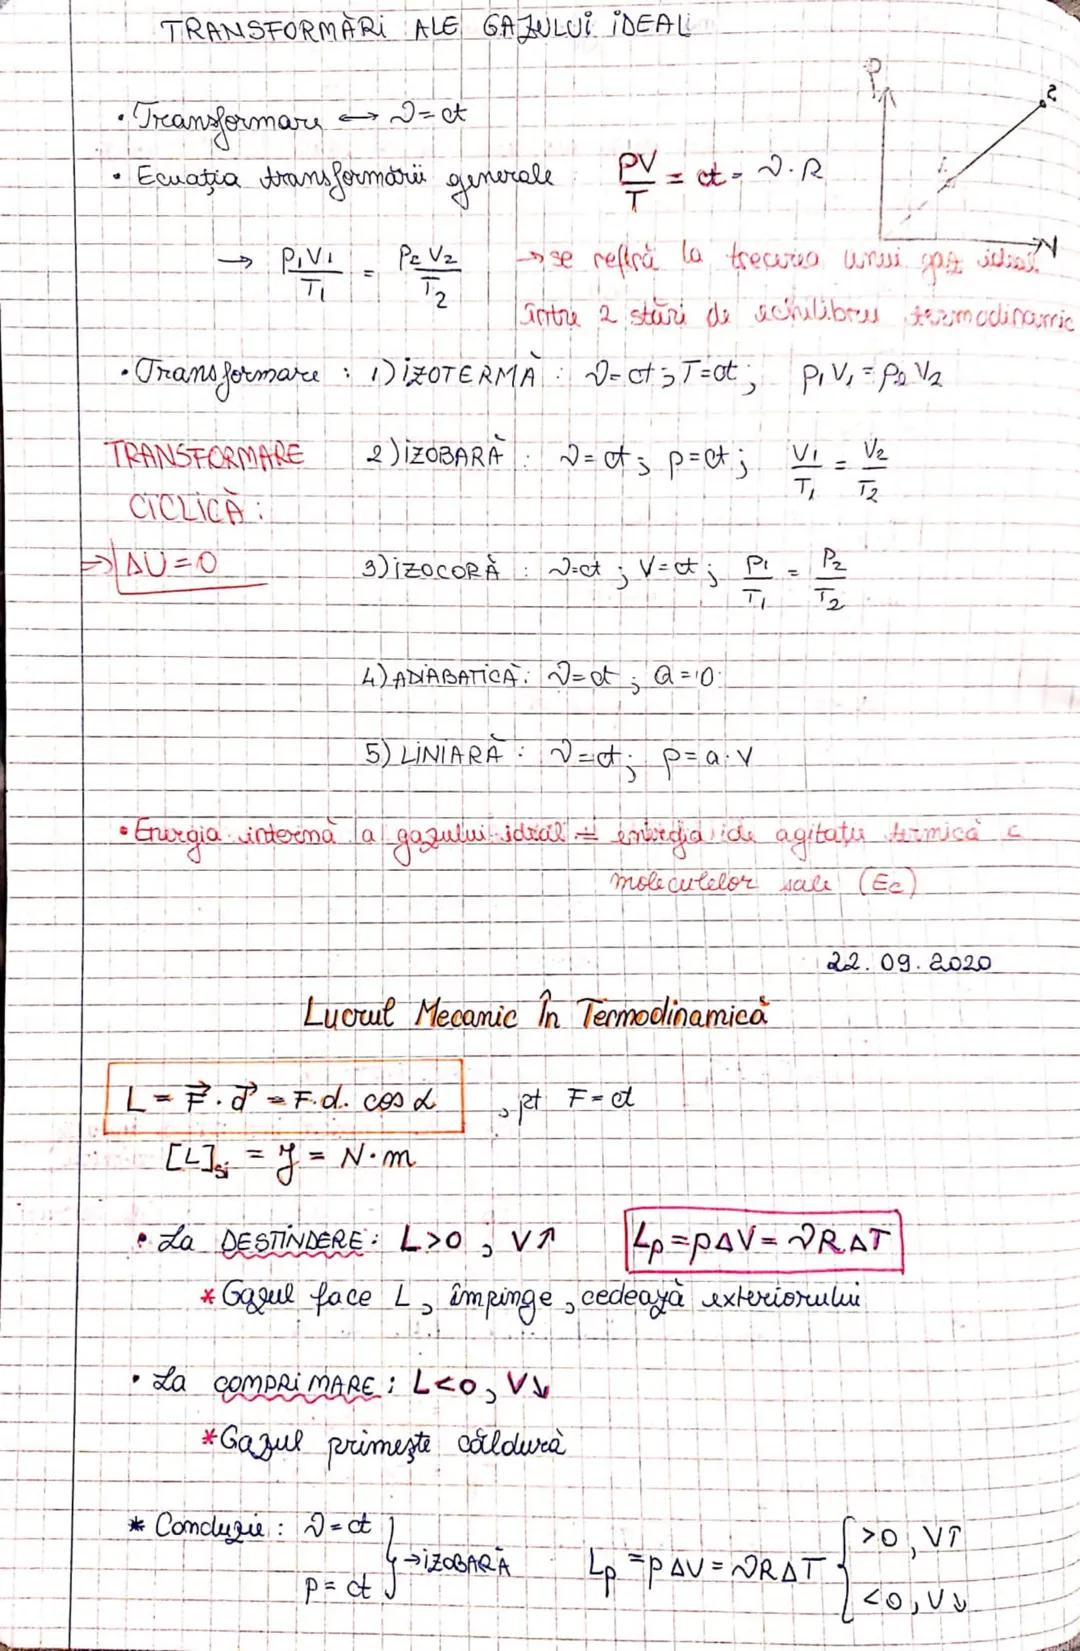 TRANSFORMĂRI ALE GAZULUI IDEAL
P
2
1
V
• Transformare ⟷ ν = ct
• Ecuația transformării generale PV/T = ct = ν·R
→ P₁V₁/T₁ = P₂V₂/T₂ → se referă la trecerea unui gaz ideal
între 2 stări de echilibru termodinamic
• Transformare : 1) IZOTERMĂ : ν = ct ; T = ct ; p₁V₁ = p₂V₂
TRANSFORMARE 2) IZOBARĂ : ν = ct ; p = ct ; V₁/T₁ = V₂/T₂
CICLICĂ :
⇒ ΔU = 0 3) IZOCORĂ : ν = ct ; V = ct ; P₁/T₁ = P₂/T₂
4) ADIABATICĂ : ν = ct ; Q = 0
5) LINIARĂ : ν = ct ; p = a·V
• Energia internă a gazului ideal = energia de agitație termică a
moleculelor sale (Ec)
22.09.2020
Lucrul Mecanic În Termodinamică
L = F⃗ · d⃗ = F·d·cos α , pt F = ct
[L]SI = J = N·m
• La DESTINDERE : L>0 , V↑ Lp = pΔV = νRΔT
* Gazul face L, împinge, cedează exteriorului
• La COMPRIMARE : L<0, V↓
* Gazul primește căldură
* Concluzie : ν = ct
p = ct } → IZOBARĂ Lp = pΔV = νRΔT { >0, V↑
<0, V↓